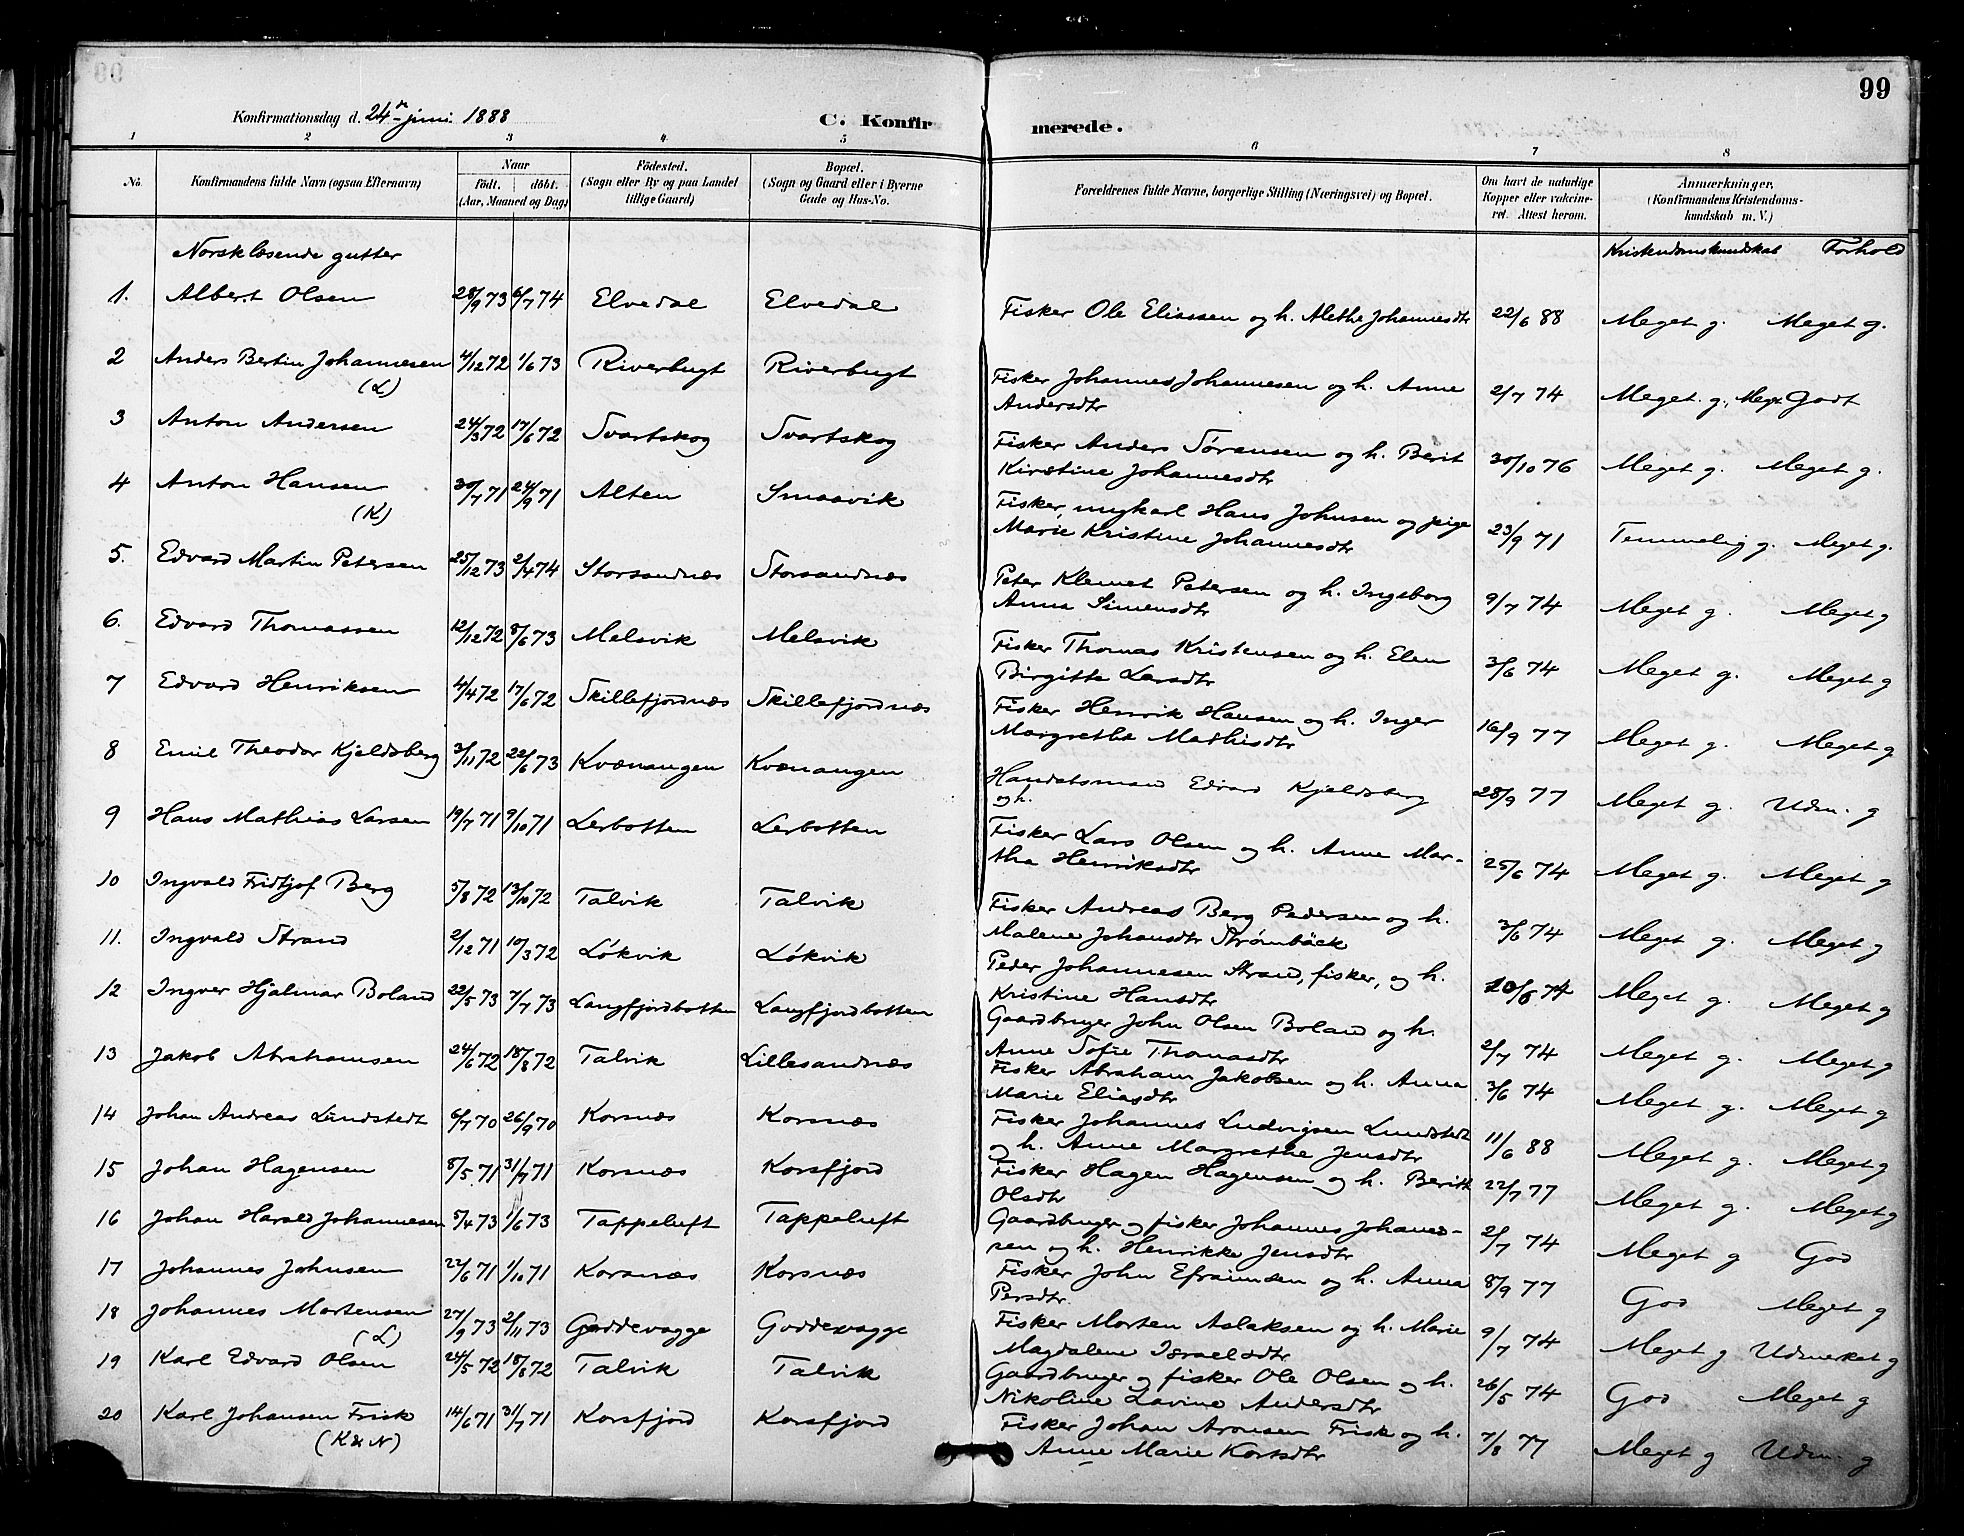 99
Konfirmationsdag d. 24de juni 1888
C. Konfirmerede.
1 2 3 4 5 6 7 8
No. Konfirmandens fulde Navn (ogsaa Efternavn) Naar født. døbt. (Aar, Maaned og Dag) Fødested. (Sogn eller By og paa Landet tillige Gaard) Bopæl. (Sogn og Gaard eller i Byerne Gade og Hus-No. Forældrenes fulde Navne, borgerlige Stilling (Næringsvei) og Bopæl. Om havt de naturlige Kopper eller vakcineret. Attest herom. Anmærkninger. (Konfirmandens Kristendomskundskab m. V.)
Norsklæsende gutter Kristendomskundskab Forhold
1. Albert Olsen 28/9 73 6/7 74 Elvedal Elvedal Fisker Ole Eliassen og h. Alethe Johannesdtr 22/6 88 Meget g. Meget g.
2 Anders Bertin Johannesen (L) 4/12 72 1/6 73 Riverbugt Riverbugt Fisker Johannes Johannesen og h. Anne Andersdtr 2/7 74 Meget g. Meget Godt
3 Anton Andersen 24/3 72 17/6 72 Svartskog Svartskog Fisker Anders Sørensen og h. Berit Kirstine Johannesdtr 30/10 76 Meget g. Meget g.
4 Anton Hansen (K) 30/7 71 24/9 71 Alten Smaavik Fisker, ungkarl Hans Johnsen og pige Marie Kristine Johannesdtr 23/9 71 Temmelig g. Meget g.
5. Edvard Martin Petersen 25/12 73 2/4 74 Storsandnæs Storsandnæs Peter Klemet Petersen og h. Ingeborg Anna Simensdtr 9/7 74 Meget g. Meget g
6. Edvard Thomassen 12/12 72 8/6 73 Melsvik Melsvik Fisker Thomas Kristensen og h. Elen Birgitte Larsdtr 3/6 74 Meget g. Meget g
7 Edvard Henriksen 4/4 72 17/6 72 Skillefjordnæs Skillefjordnæs Fisker Henrik Hansen og h. Inger Margrethe Mathisdtr 16/9 77 Meget g. Meget g
8 Emil Theodor Kjeldsberg 3/11 72 22/6 73 Kvænangen Kvænangen Handelsmand Edvard Kjeldsberg og h. 28/9 77 Meget g. Udm. g
9 Hans Mathias Larsen 19/7 71 9/10 71 Lerbotten Lerbotten Fisker Lars Olsen og h. Anne Martha Henriksdtr 25/6 74 Meget g. Meget g
10 Ingvald Fridtjof Berg 5/8 72 13/10 72 Talvik Talvik Fisker Andreas Berg Pedersen og h. Malene Johansdtr Strømbäck 3/6 74 Meget g. Meget g
11. Ingvald Strand 2/12 71 10/3 72 Løkvik Løkvik Peder Johannesen Strand, fisker, og h. Kristine Hansdtr 74 Meget g. Meget g
12 Ingver Hjalmar Boland 22/5 73 7/7 73 Langfjordbotten Langfjordbotten Gaardbruger John Olsen Boland og h. Anne Sofie Thomasdtr 2/7 74 Meget g. Meget g
13 Jakob Abrahamsen 24/6 72 18/8 72 Talvik Lillesandnæs Fisker Abraham Jakobsen og h. Anna Marie Eliasdtr 3/6 74 Meget g. Meget g
14 Johan Andreas Lundstedt 6/7 70 26/9 70 Korsnæs Korsnæs Fisker Johannes Ludvigsen Lundstedt og h. Anne Margrethe Jensdtr 11/6 88 Meget g. Meget g
15 Johan Hagensen 8/5 71 31/7 71 Korsnæs Korsfjord Fisker Hagen Hagensen og h. Berith Olsdtr 22/7 77 Meget g. Meget g
16 Johan Harald Johannesen 5/4 73 1/6 73 Tappeluft Tappeluft Gaardbruger og fisker Johannes Johannessen og h. Henrikke Jensdtr 2/7 74 Meget g God
17 Johannes Johnsen 22/6 71 1/10 71 Korsnæs Korsnæs Fisker John Efraimsen og h. Anna Persdtr. 8/9 77 God Meget g
18 Johannes Mortensen (L) 27/9 73 2/11 73 Goddevagge Goddevagge Fisker Morten Aslaksen og h. Marie Magdalene Israelsdtr 9/7 74 Meget g Udmerket g
19 Karl Edvard Olsen 24/5 72 18/8 72 Talvik Talvik Gaardbruger og fisker Ole Olsen og h. Nikoline Lavine Andersdtr 26/5 74 God Meget g
20 Karl Johansen Frisk (K & N) 14/6 71 31/7 71 Korsfjord Korsfjord Fisker Johan Aronsen Frisk og h. Anne Marie Kortsdtr 7/8 77 Meget g Udm. g